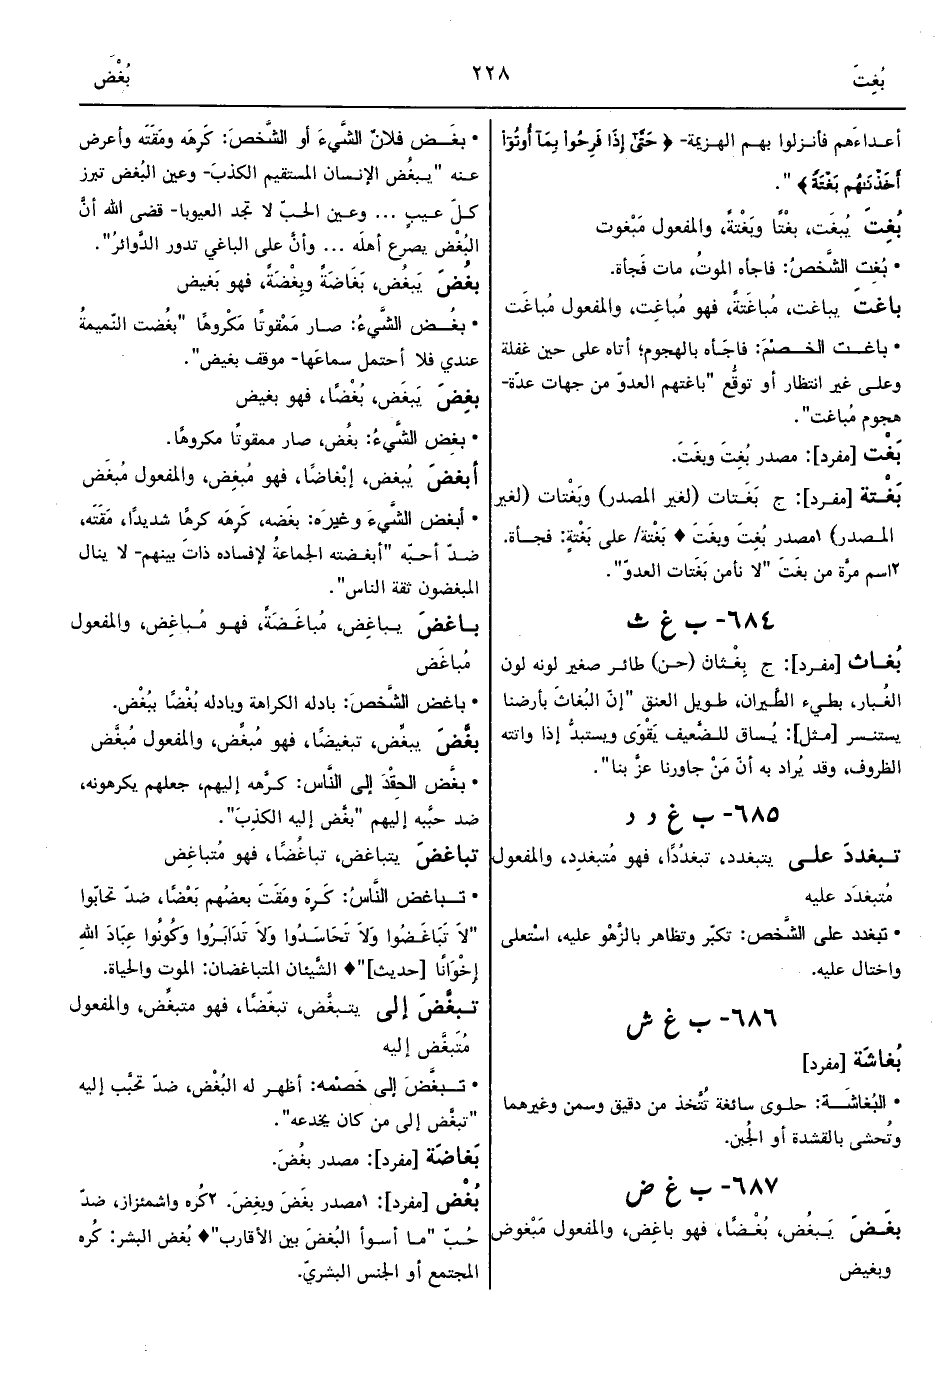 بُغِتَ
٢٢٨
بُغْض
أعـداءَهم فأنـزلوا بهـم الهـزيمة- ﴿ حَتَّىٰٓ إِذَا فَرِحُوا۟ بِمَآ أُوتُوٓا۟
أَخَذْنَٰهُم بَغْتَةً ﴾ ".
بُغِتَ يُبغَت، بغْتًا وبَغْتةً، والمفعول مَبْغوت
• بُغِت الشَّخصُ: فاجأه الموتُ، مات فَجأة.
باغتَ يباغت، مُباغَتةً، فهو مُباغِت، والمفعول مُباغَت
• باغـت الخـصمَ: فاجَـأه بالهجوم؛ أتاه على حين غفلة
وعلـى غير انتظار أو توقُّع "باغتهم العدوّ من جهات عدّة-
هجوم مُباغت".
بَغْت [مفرد]: مصدر بُغِتَ وبغَتَ.
بَغْتة [مفـرد]: ج بَغَـتات (لغير المصدر) وبَغْتات (لغير
المـصدر) ١مصدر بُغِتَ وبغَتَ ♦ بَغْتة/ على بَغْتةٍ: فجـأة.
٢اسم مرَّة من بغَتَ "لا نأمن بَغَتات العدوّ".
٦٨٤- ب غ ث
بُغـاث [مفـرد]: ج بِغْـثان (حـن) طائـر صغير لونه لون
الغُـبار، بطيء الطَّيران، طـويل العنق "إنّ البُغاثَ بأرضنا
يستنسـر [مـثل]: يُساق للـضَّعيف يَقْوَى ويستبدُّ إذا واتته
الظروف، وقد يُراد به أنّ مَنْ جاورنا عزَّ بنا".
٦٨٥- ب غ د د
تـبغددَ علـى يتبغدد، تبغدُدًا، فهو مُتبغدِد، والمفعول
مُتبغدَد عليه
• تبغدد على الشَّخص: تكبّر وتظاهر بالزَّهْو عليه، اسْتعلى
واختال عليه.
٦٨٦- ب غ ش
بُغاشَة [مفرد]
• البُغاشَـة: حلـوى سائغة تُتَّخذ من دقيق وسمن وغيرهما
وتُحشى بالقشدة أو الجُبن.
٦٨٧- ب غ ض
بغَـضَ يَـبغُض، بُغْـضًا، فهو باغِض، والمفعول مَبْغوض
وبغيض
• بغَـض فلانٌ الشَّيءَ أو الشَّخصَ: كَرِهَه ومَقَتَه وأعرض
عـنه "يـبغُض الإنسان المستقيم الكذبَ- وعين البُغض تبرز
كـلّ عـيبٍ ... وعـين الحـبّ لا تجد العيوبا- قضى الله أنَّ
البُغْض يصرع أهلَه ... وأنَّ على الباغي تدور الدَّوائرُ".
بغُضَ يَبغُض، بَغَاضَةً وبِغْضَةً، فهو بَغيض
• بغُـض الـشَّيءُ: صـار مَمْقوتًا مَكْروهًا "بغُضت النَّميمةُ
عندي فلا أحتمل سماعَها- موقف بغيض".
بغِضَ يَبغَض، بُغْضًا، فهو بغيض
• بغِض الشَّيءُ: بغُض، صار ممقوتًا مكروهًا.
أبغضَ يُبغِض، إبْغاضًا، فهو مُبغِض، والمفعول مُبغَض
• أبغـض الشَّيءَ وغيرَه: بغَضه، كَرِهَه كرهًا شديدًا، مَقَتَه،
ضـدّ أحبّه "أبغـضته الجماعةُ لإفساده ذاتَ بينهم- لا ينال
المبغضون ثقة الناس".
بـاغضَ يـباغِض، مُباغَـضَةً، فهـو مُـباغِض، والمفعول
مُباغَض
• باغض الشَّخصَ: بادله الكراهة وبادله بُغْضًا ببُغْض.
بغَّضَ يبغِّض، تبغيضًا، فهو مُبغِّض، والمفعول مُبغَّض
• بغَّض الحِقْدَ إلى النَّاس: كـرَّهه إليهم، جعلهم يكرهونه،
ضد حبَّبه إليهم "بغَّض إليه الكذِبَ".
تباغضَ يتباغض، تباغُضًا، فهو مُتباغِض
• تـباغض النَّاسُ: كـرِهَ ومَقَتَ بعضُهم بَعْضًا، ضدّ تحابّوا
"لاَ تَبَاغَـضُوا وَلاَ تَحَاسَـدُوا وَلاَ تَدَابَـرُوا وَكُونُوا عِبَادَ اللهِ
إِخْوَانًا [حديث]"♦ الشَّيئان المتباغضان: الموت والحياة.
تـبغَّضَ إلى يتـبغَّض، تبغّضًا، فهو متبغِّض، والمفعول
مُتَبغَّض إليه
• تـبغَّضَ إلى خَصْمه: أظهـر له البُغْض، ضدّ تحبَّب إليه
"تبغَّض إلى من كان يخدعه".
بَغاضَة [مفرد]: مصدر بغُضَ.
بُغْض [مفرد]: ١مصدر بغَضَ وبغِضَ. ٢كُره واشمئزاز، ضدّ
حُبّ "مـا أسـوأ البُغضَ بين الأقارب"♦ بُغض البشر: كُره
المجتمع أو الجنس البشريّ.